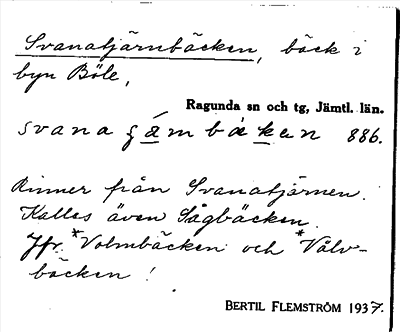 Svanatjärnbäcken, bäck i
byn Böle,
Ragunda sn och tg, Jämtl. län.
svanaʃä́mbäkan 886.
Rinner från Svanatjärnen.
Kallas även Sågbäcken.
Jfr. *Volmbäcken och *Vålv-
bäcken!
BERTIL FLEMSTRÖM 1937.